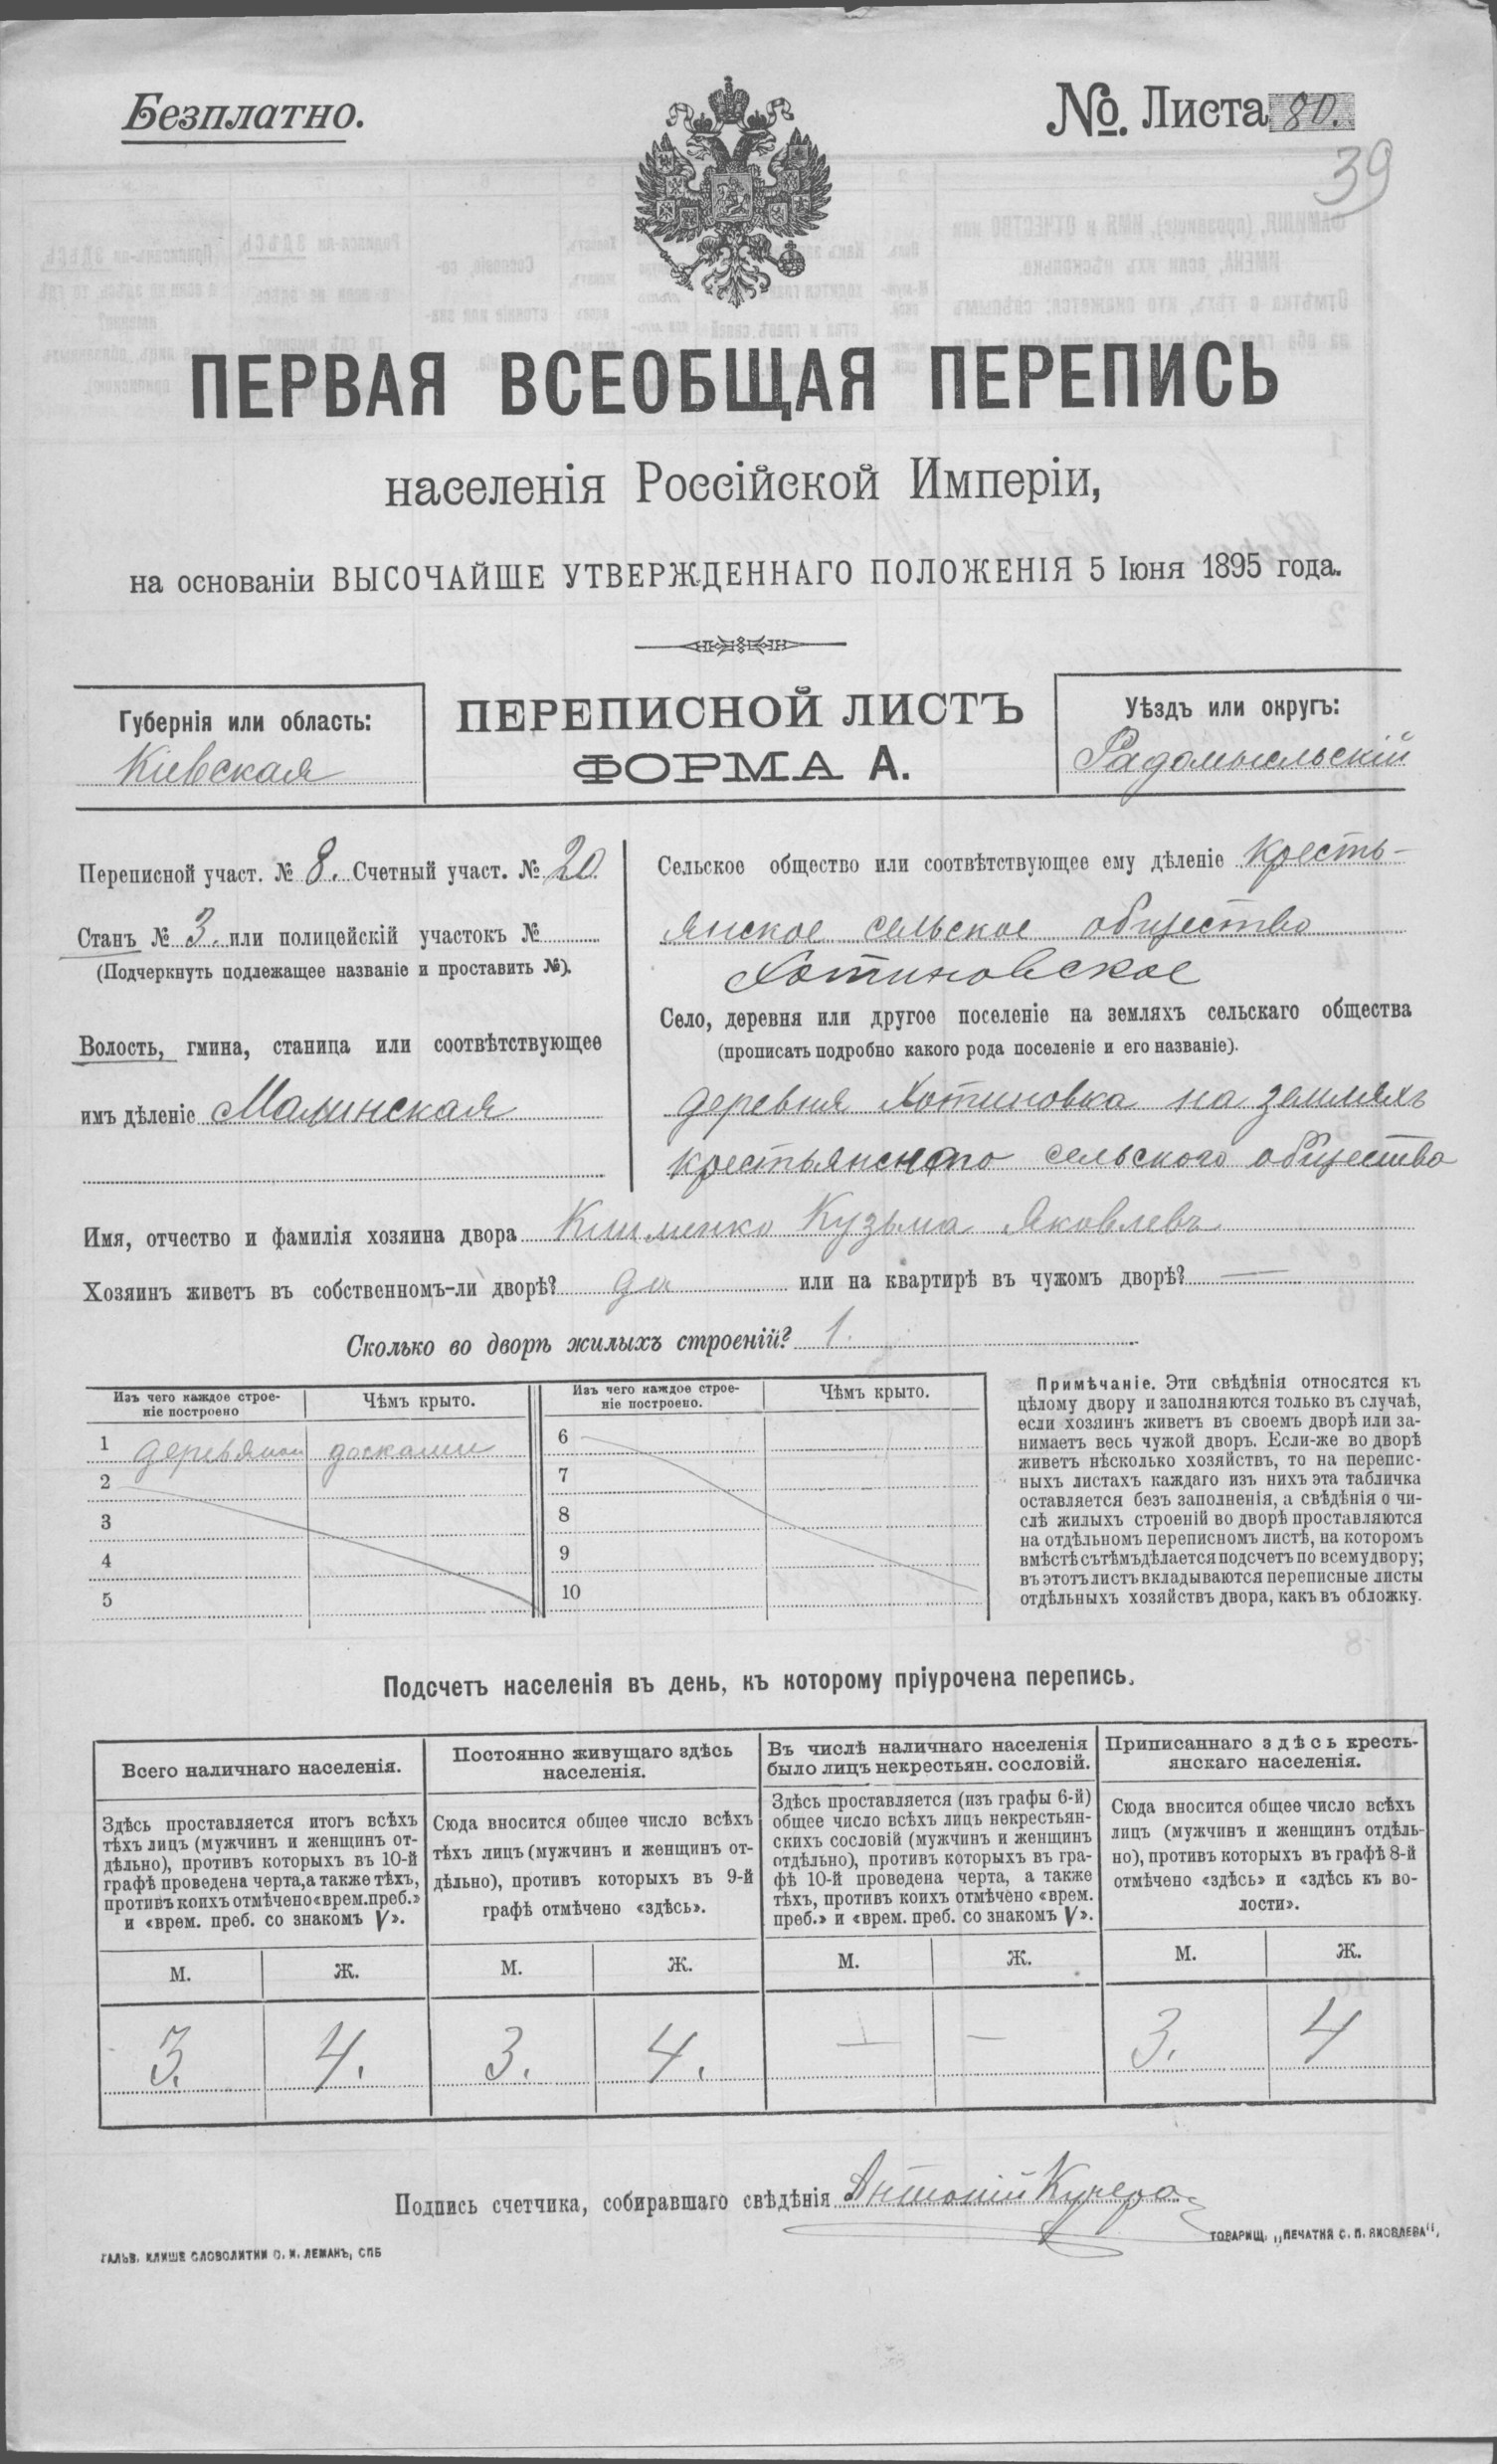 Безплатно.
№. Листа 80.
39
ПЕРВАЯ ВСЕОБЩАЯ ПЕРЕПИСЬ
населенія Россійской Имперіи,
на основаніи ВЫСОЧАЙШЕ УТВЕРЖДЕННАГО ПОЛОЖЕНІЯ 5 Іюня 1895 года.
Губернія или область:
Кіевская
ПЕРЕПИСНОЙ ЛИСТЪ
ФОРМА А.
Уѣздъ или округъ:
Радомысльскій
Переписной участ. № 8. Счетный участ. № 20.
Станъ № 3. или полицейскій участокъ №
(Подчеркнуть подлежащее названіе и проставить №).
Волость, гмина, станица или соотвѣтствующее
имъ дѣленіе Малинская
Сельское общество или соотвѣтствующее ему дѣленіе Кресть-
янское сельское общество
Хотиновское
Село, деревня или другое поселеніе на земляхъ сельскаго общества
(прописать подробно какого рода поселеніе и его названіе).
деревня Хотиновка на земляхъ
крестьянского сельского общества
Имя, отчество и фамилія хозяина двора Клименко Кузьма Яковлевъ
Хозяинъ живетъ въ собственномъ-ли дворѣ? да или на квартирѣ въ чужомъ дворѣ? —
Сколько во дворѣ жилыхъ строеній? 1.
Изъ чего каждое строе-
ніе построено
Чѣмъ крыто.
Изъ чего каждое строе-
ніе построено.
Чѣмъ крыто.
1 деревяной досками
2
3
4
5
6
7
8
9
10
Примѣчаніе. Эти свѣдѣнія относятся къ
цѣлому двору и заполняются только въ случаѣ,
если хозяинъ живетъ въ своемъ дворѣ или за-
нимаетъ весь чужой дворъ. Если-же во дворѣ
живетъ нѣсколько хозяйствъ, то на перепис-
ныхъ листахъ каждаго изъ нихъ эта табличка
оставляется безъ заполненія, а свѣдѣнія о чи-
слѣ жилыхъ строеній во дворѣ проставляются
на отдѣльномъ переписномъ листѣ, на которомъ
вмѣстѣ съ тѣмъ дѣлается подсчетъ по всему двору;
въ этотъ листъ вкладываются переписные листы
отдѣльныхъ хозяйствъ двора, какъ въ обложку.
Подсчетъ населенія въ день, къ которому пріурочена перепись.
Всего наличнаго населенія.
Здѣсь проставляется итогъ всѣхъ
тѣхъ лицъ (мужчинъ и женщинъ от-
дѣльно), противъ которыхъ въ 10-й
графѣ проведена черта, а также тѣхъ,
противъ коихъ отмѣчено «врем. преб.»
и «врем. преб. со знакомъ V».
Постоянно живущаго здѣсь
населенія.
Сюда вносится общее число всѣхъ
тѣхъ лицъ (мужчинъ и женщинъ от-
дѣльно), противъ которыхъ въ 9-й
графѣ отмѣчено «здѣсь».
Въ числѣ наличнаго населенія
было лицъ некрестьян. сословій.
Здѣсь проставляется (изъ графы 6-й)
общее число всѣхъ лицъ некрестьян-
скихъ сословій (мужчинъ и женщинъ
отдѣльно), противъ которыхъ въ гра-
фѣ 10-й проведена черта, а также
тѣхъ, противъ коихъ отмѣчено «врем.
преб.» и «врем. преб. со знакомъ V».
Приписаннаго здѣсь кресть-
янскаго населенія.
Сюда вносится общее число всѣхъ
лицъ (мужчинъ и женщинъ отдѣль-
но), противъ которыхъ въ графѣ 8-й
отмѣчено «здѣсь» и «здѣсь къ во-
лости».
М. Ж. М. Ж. М. Ж. М. Ж.
3. 4. 3. 4. — — 3. 4
Подпись счетчика, собиравшаго свѣдѣнія Антоній Кучера
ГАЛЬВ. КЛИШЕ СЛОВОЛИТНИ О. И. ЛЕМАНЪ, СПБ
ТОВАРИЩ. „ПЕЧАТНЯ С. П. ЯКОВЛЕВА“,